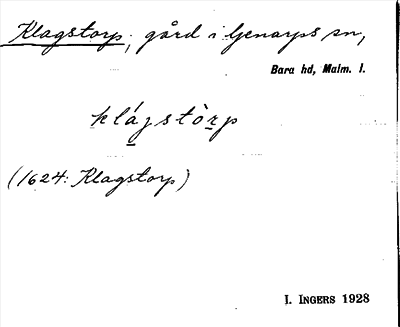 Klagstorp, gård i Genarps sn,
Bara hd, Malm. l.
klágstòrp
(1624: Klagstorp)
I. INGERS 1928